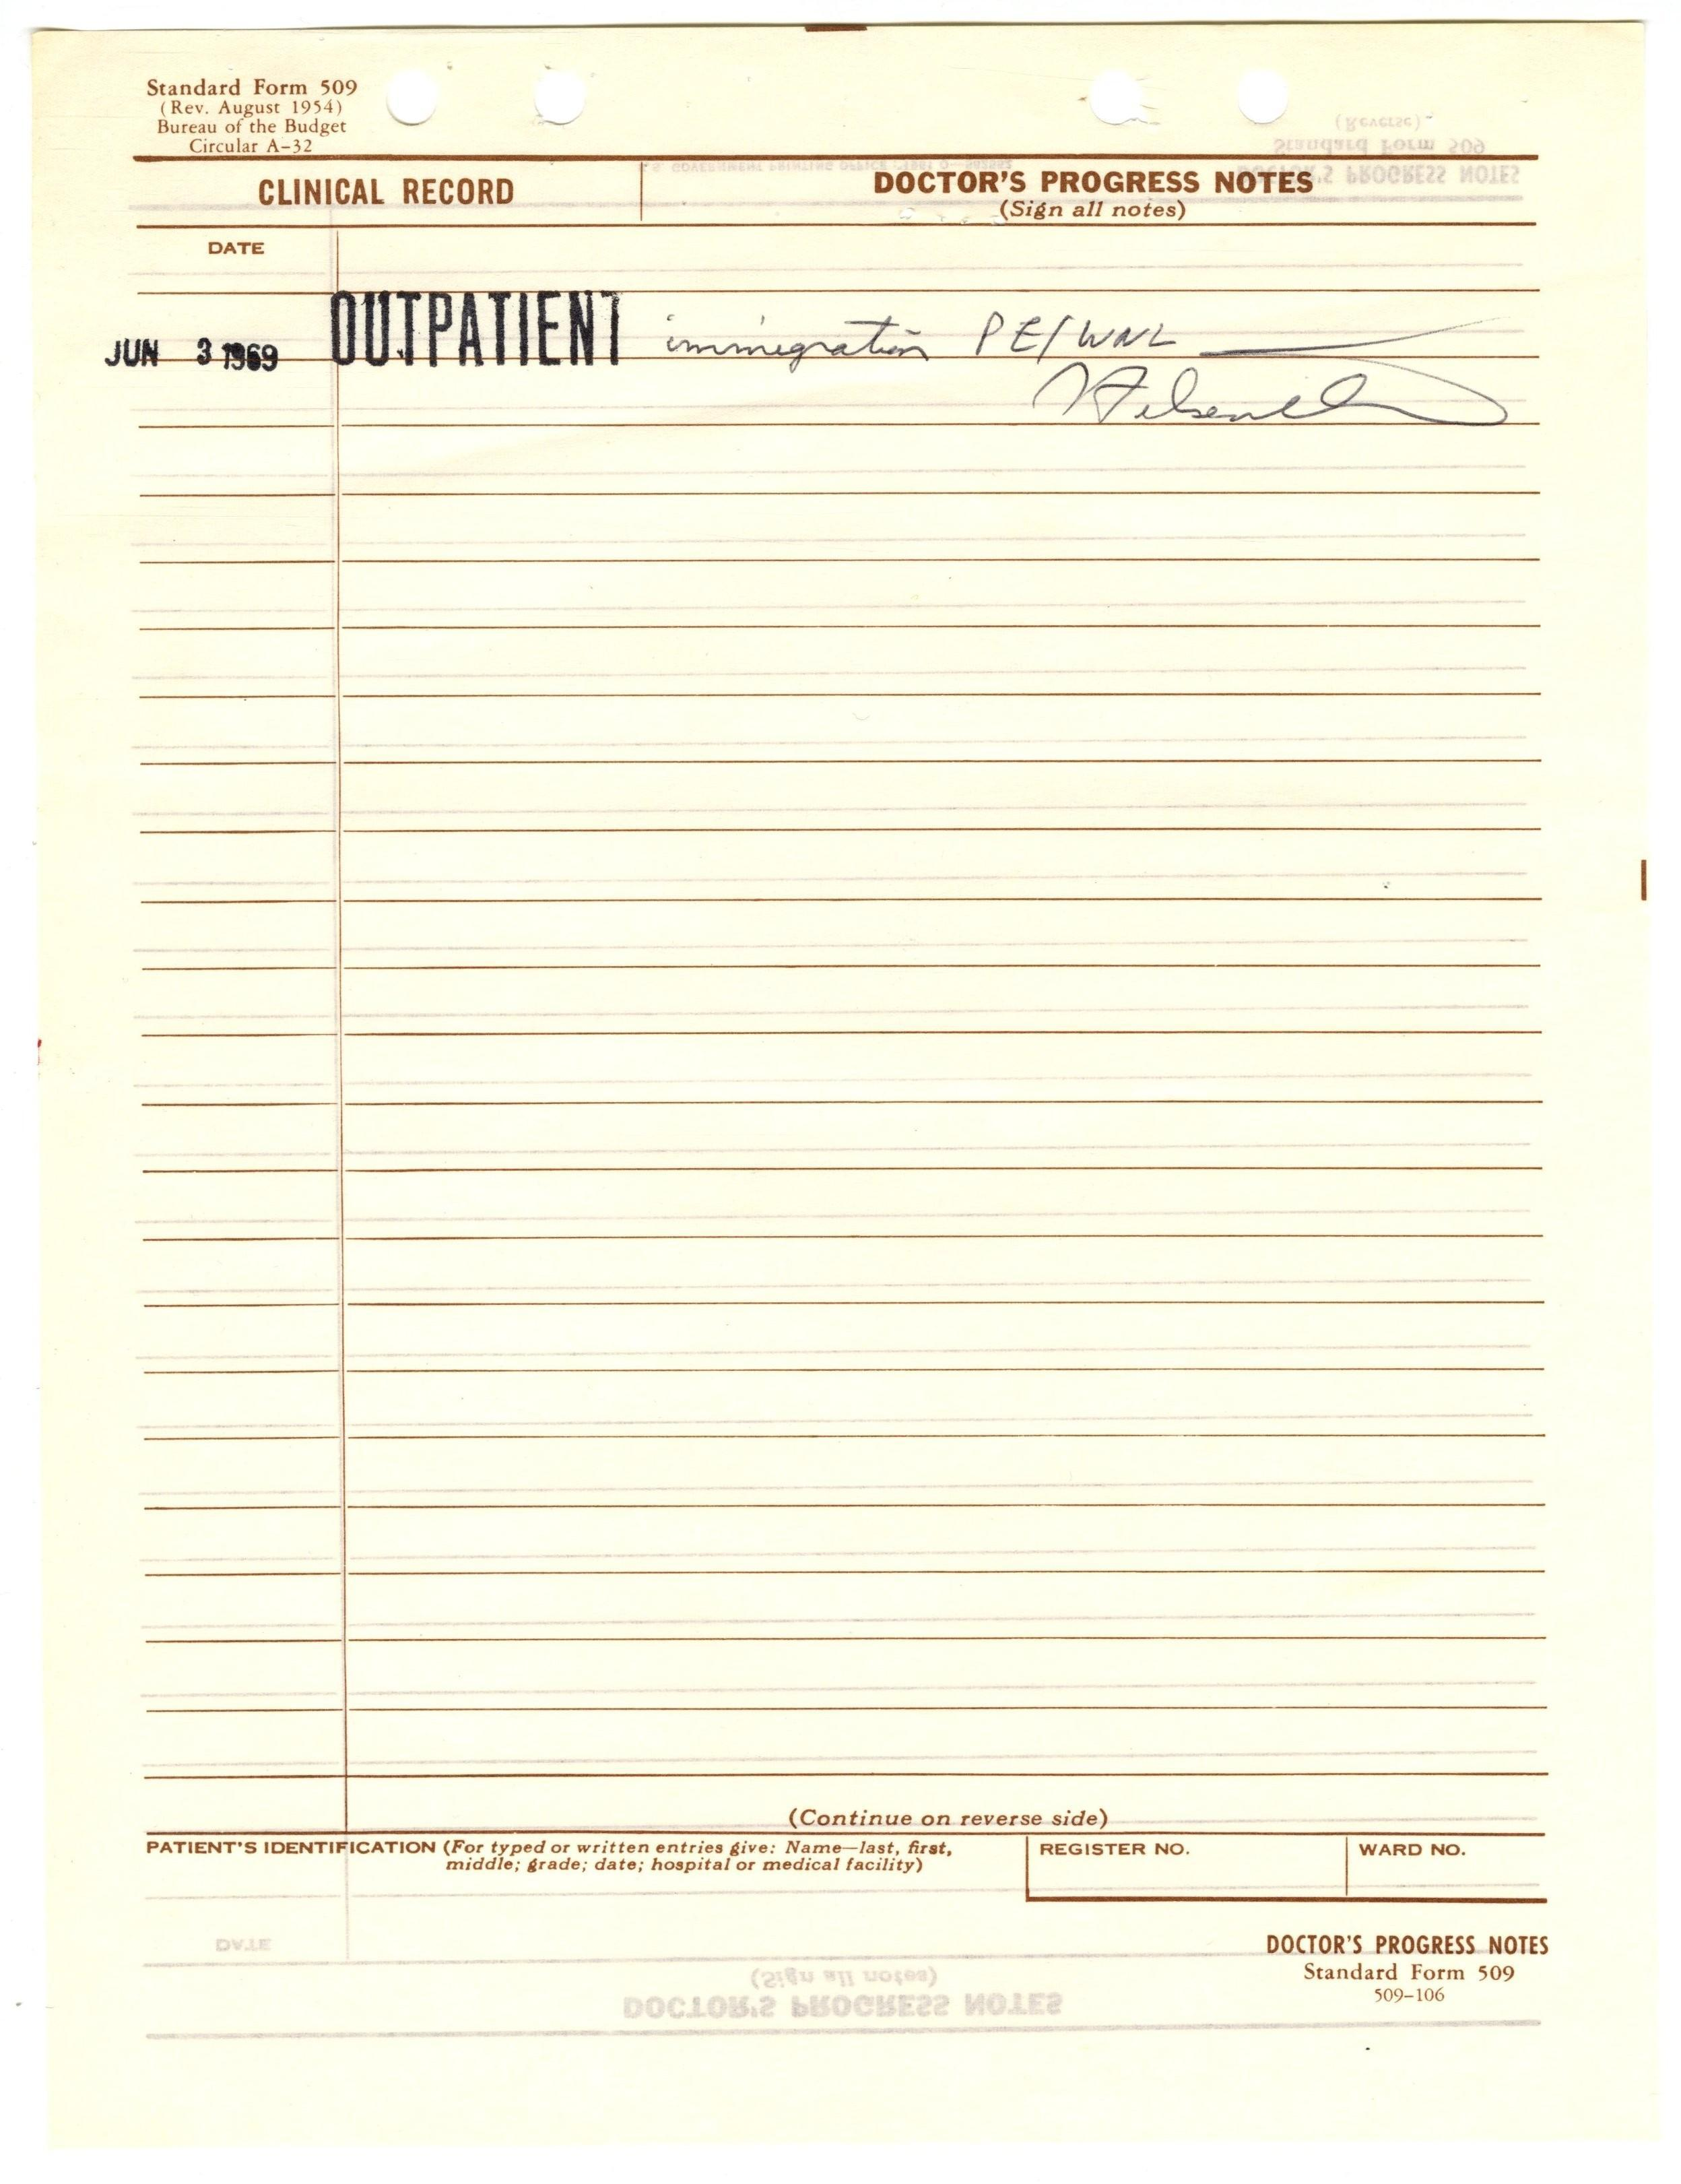 Standard Form 509
(Rev. August 1954)
Bureau of the Budget
Circular A-32
CLINICAL RECORD
DOCTOR'S PROGRESS NOTES
(Sign all notes)
DATE
JUN 3 1969 OUTPATIENT immigration PE/WNL
(Continue on reverse side)
PATIENT'S IDENTIFICATION (For typed or written entries give: Name—last, first,
middle; grade; date; hospital or medical facility)
REGISTER NO.
WARD NO.
DOCTOR'S PROGRESS NOTES
Standard Form 509
509-106